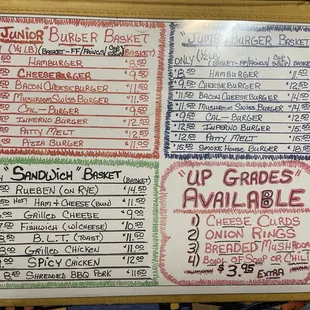 "Junior" Burger Basket
(¼ LB) (Basket-FF/Parings/ (Basket)
Hamburger $8.50
Cheeseburger $9.00
Bacon Cheeseburger $11.00
Mushroom Swiss Burger
Cal-Burger
Inferno Burger
Patty Melt
Pizza Burger $11.00
Burger Basket
ONLY (½ LB) (Basket)
8 Hamburger
9 Cheeseburger
11 Bacon Cheeseburger
11 Mushroom Swiss Burger
9 Cal-Burger
12 Inferno Burger
12 Patty Melt
15 Smoke House Burger
"Sandwich" Basket (Basket)
Rueben (on Rye) $14.50
Hot Ham + Cheese (Bun) $11.00
Grilled Cheese $9.00
Fishwich (w/ Cheese) $10.50
B.L.T. (Toast) $11.00
Grilled Chicken $11.00
Spicy Chicken $12.00
Shredded BBQ Pork
"Up Grades"
Available
1) Cheese Curds
2) Onion Rings
3) Breaded Mushrooms
4) Bowl of Soup or Chili
$3.95 Extra